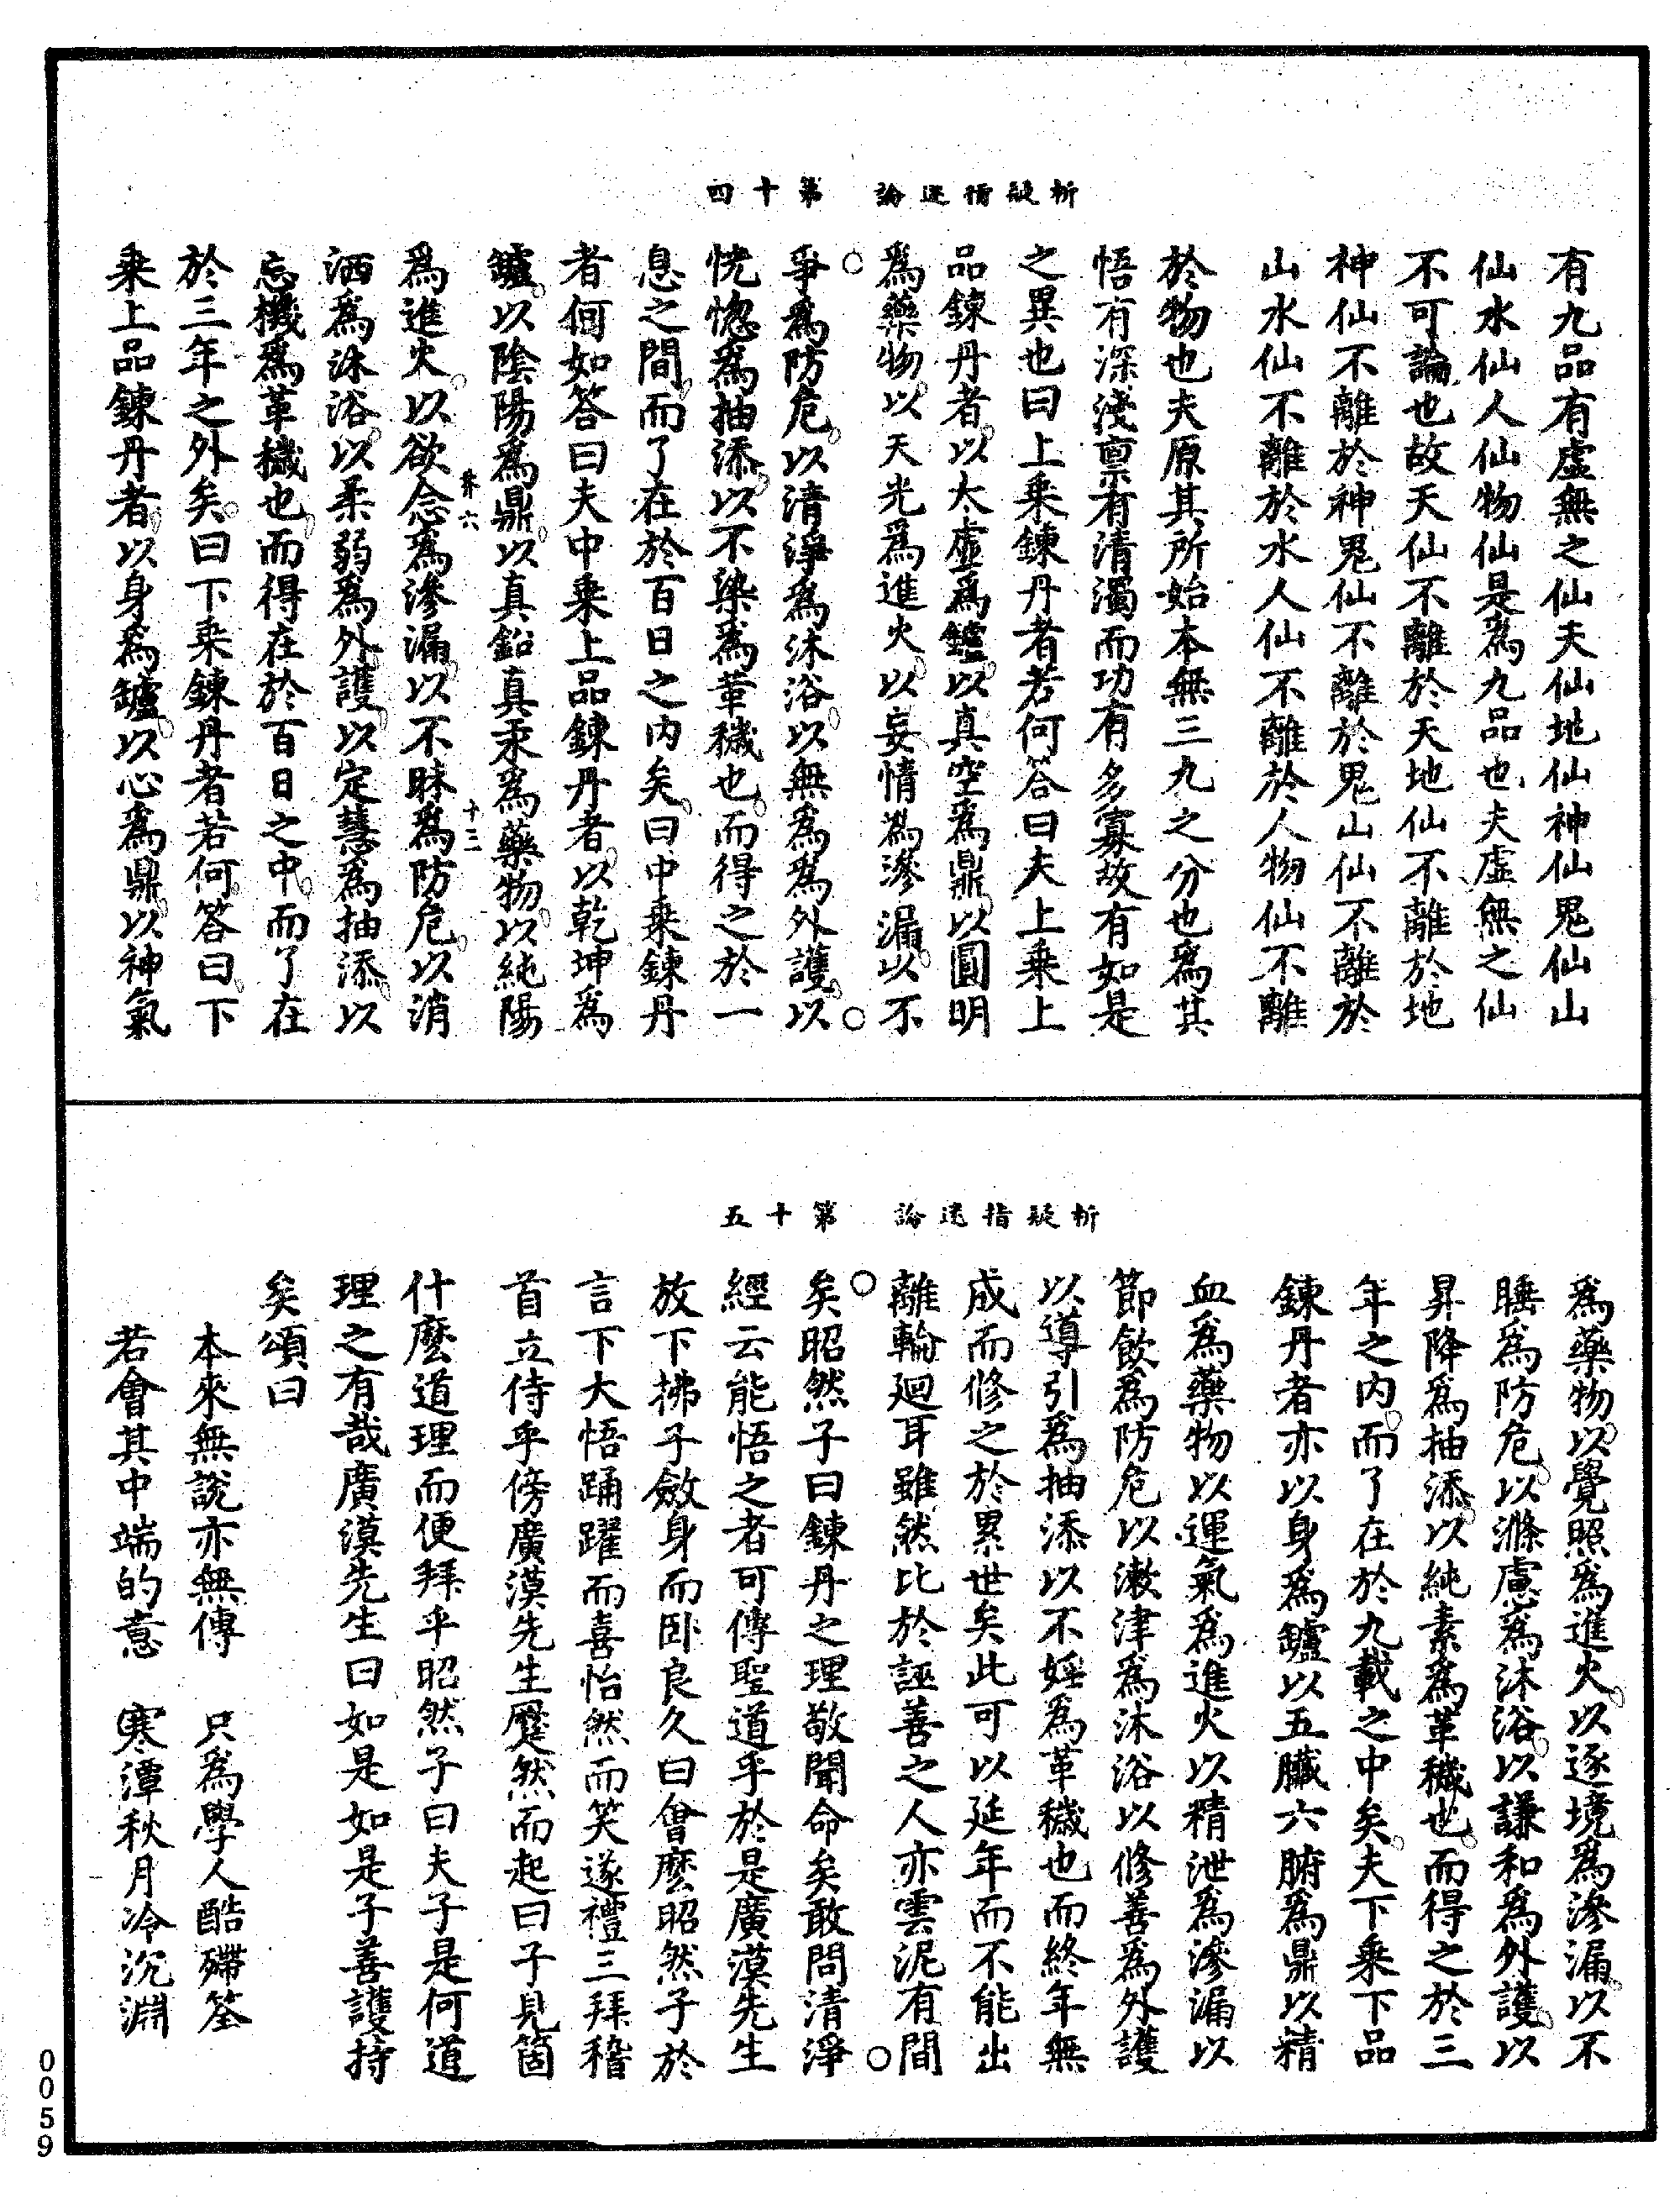 析疑指迷論　第十四
有九品有虛無之仙天仙地仙神仙鬼仙山
仙水仙人仙物仙是為九品也夫虛無之仙
不可論也故天仙不離於天地仙不離於地
神仙不離於神鬼仙不離於鬼山仙不離於
山水仙不離於水人仙不離於人物仙不離
於物也夫原其所始本無三九之分也為其
悟有深淺稟有清濁而功有多寡故有如是
之異也曰上乘鍊丹者若何答曰夫上乘上
品鍊丹者以太虛為鑪以真空為鼎以圓明
為藥物以天光為進火以妄情為滲漏以不
爭為防危以清淨為沐浴以無為為外護以
恍惚為抽添以不染為革穢也而得之於一
息之間而了在於百日之內矣曰中乘鍊丹
者何如答曰夫中乘上品鍊丹者以乾坤為
鑪以陰陽為鼎以真鉛真汞為藥物以純陽
芥六　十三
為進火以欲念為滲漏以不昧為防危以消
洒為沐浴以柔弱為外護以定慧為抽添以
忘機為革穢也而得在於百日之中而了在
於三年之外矣曰下乘鍊丹者若何答曰下
乘上品鍊丹者以身為鑪以心為鼎以神氣
析疑指迷論　第十五
為藥物以覺照為進火以逐境為滲漏以不
睡為防危以滌慮為沐浴以謙和為外護以
昇降為抽添以純素為革穢也而得之於三
年之內而了在於九載之中矣夫下乘下品
鍊丹者亦以身為鑪以五臟六腑為鼎以精
血為藥物以運氣為進火以精泄為滲漏以
節飲為防危以漱津為沐浴以修善為外護
以導引為抽添以不婬為革穢也而終年無
成而修之於累世矣此可以延年而不能出
離輪廻耳雖然比於誣善之人亦雲泥有間
矣昭然子曰鍊丹之理敬聞命矣敢問清淨
經云能悟之者可傳聖道乎於是廣漠先生
放下拂子斂身而臥良久曰會麼昭然子於
言下大悟踊躍而喜怡然而笑遂禮三拜稽
首立侍乎傍廣漠先生蹷然而起曰子見箇
什麼道理而便拜乎昭然子曰夫子是何道
理之有哉廣漠先生曰如是如是子善護持
矣頌曰
本來無說亦無傳　只為學人酷殢筌
若會其中端的意　寒潭秋月冷沉淵
0059